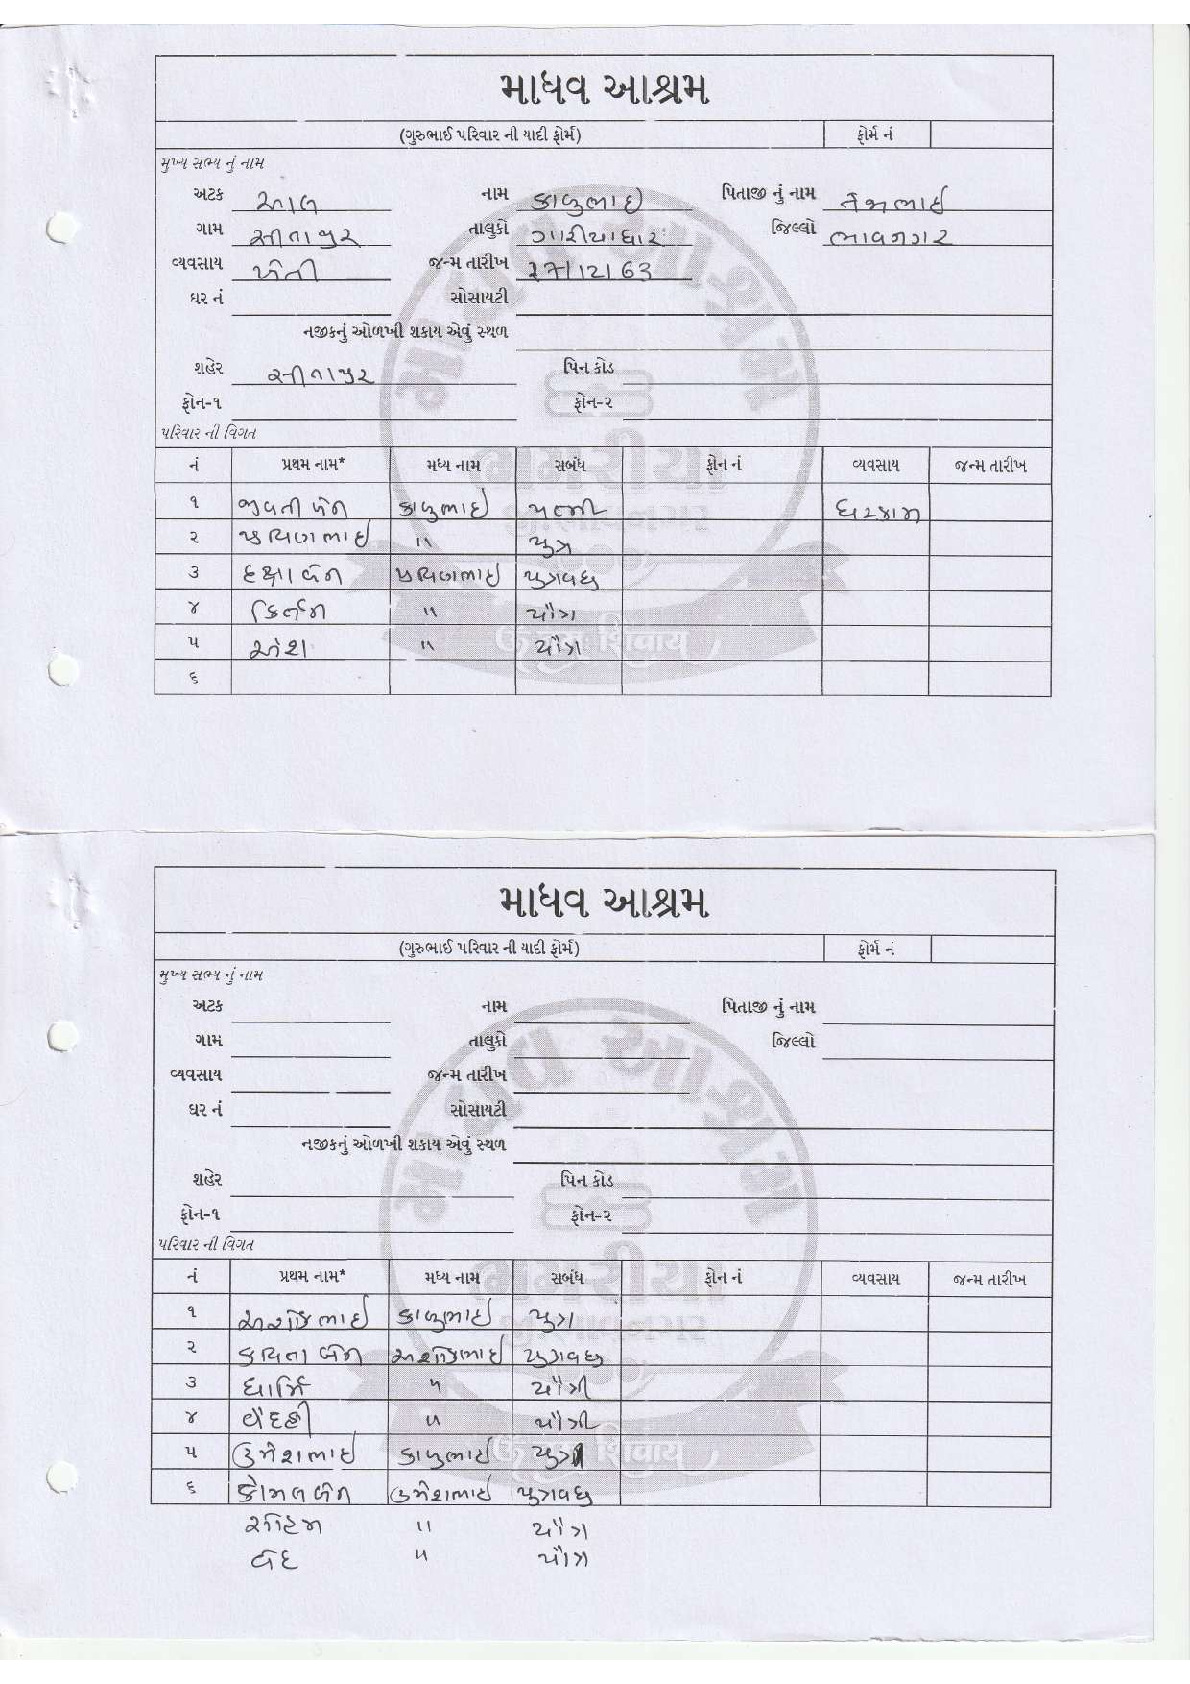 માધવ આશ્રમ
(ગુરુભાઈ પરિવાર ની યાદી ફોર્મ) ફોર્મ નં
મુખ્ય સભ્ય નું નામ
અટક આલ નામ કાળુભાઈ પિતાજી નું નામ તેજાભાઈ
ગામ સીતાપુર તાલુકો ગારીયાધાર જિલ્લો ભાવનગર
વ્યવસાય ખેતી જન્મ તારીખ ૨૭/૧૨/63
ઘર નં સોસાયટી
નજીકનું ઓળખી શકાય એવું સ્થળ
શહેર સીતાપુર પિન કોડ
ફોન-૧ ફોન-૨
પરિવાર ની વિગત
નં પ્રથમ નામ* મધ્ય નામ સબંધ ફોન નં વ્યવસાય જન્મ તારીખ
૧ જીવતીબેન કાળુભાઈ પત્ની ઘરકામ
૨ પ્રવિણભાઈ " પુત્ર
૩ દક્ષાબેન પ્રવિણભાઈ પુત્રવધુ
૪ " પૌત્ર
૫ અંશ " પૌત્ર
૬
માધવ આશ્રમ
(ગુરુભાઈ પરિવાર ની યાદી ફોર્મ) ફોર્મ નં
મુખ્ય સભ્ય નું નામ
અટક નામ પિતાજી નું નામ
ગામ તાલુકો જિલ્લો
વ્યવસાય જન્મ તારીખ
ઘર નં સોસાયટી
નજીકનું ઓળખી શકાય એવું સ્થળ
શહેર પિન કોડ
ફોન-૧ ફોન-૨
પરિવાર ની વિગત
નં પ્રથમ નામ* મધ્ય નામ સબંધ ફોન નં વ્યવસાય જન્મ તારીખ
૧ અશોકભાઈ કાળુભાઈ પુત્ર
૨ કવિતાબેન અશોકભાઈ પુત્રવધુ
૩ ધાર્મિ " પૌત્રી
૪ વૈદહી " પૌત્રી
૫ ઉમેશભાઈ કાળુભાઈ પુત્ર
૬ કોમલબેન ઉમેશભાઈ પુત્રવધુ
" પૌત્ર
વેદ " પૌત્ર